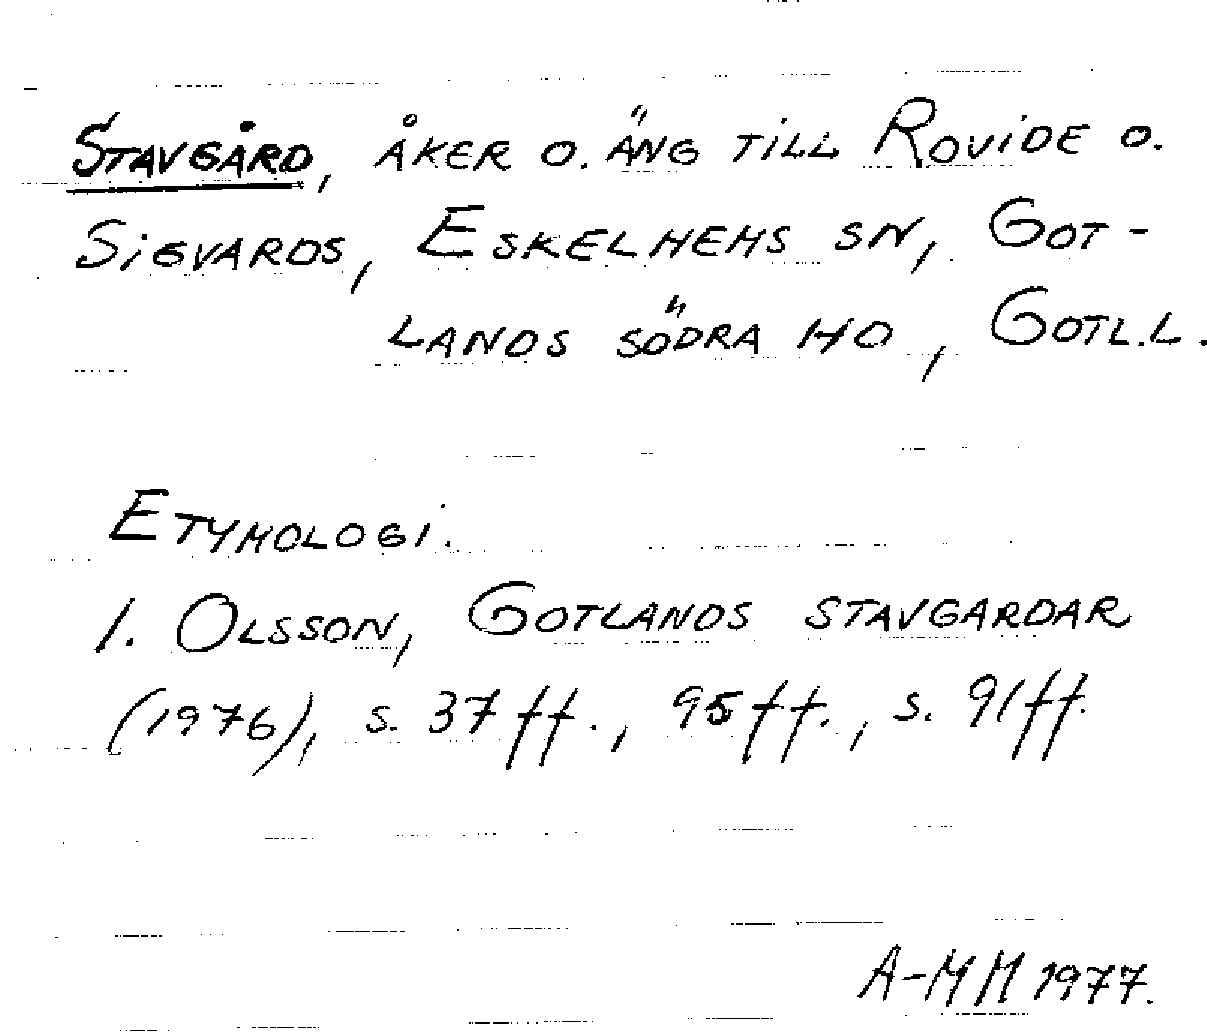 STAVGÅRD, ÅKER O. ÄNG TILL ROVIDE O.
SIGVARDS, ESKELHEMS SN, GOT-
LANDS SÖDRA HD, GOTL.L.
ETYMOLOGI.
I. OLSSON, GOTLANDS STAVGARDAR
(1976), S. 37ff., 95ff., S. 91ff.
A-MM 1977.